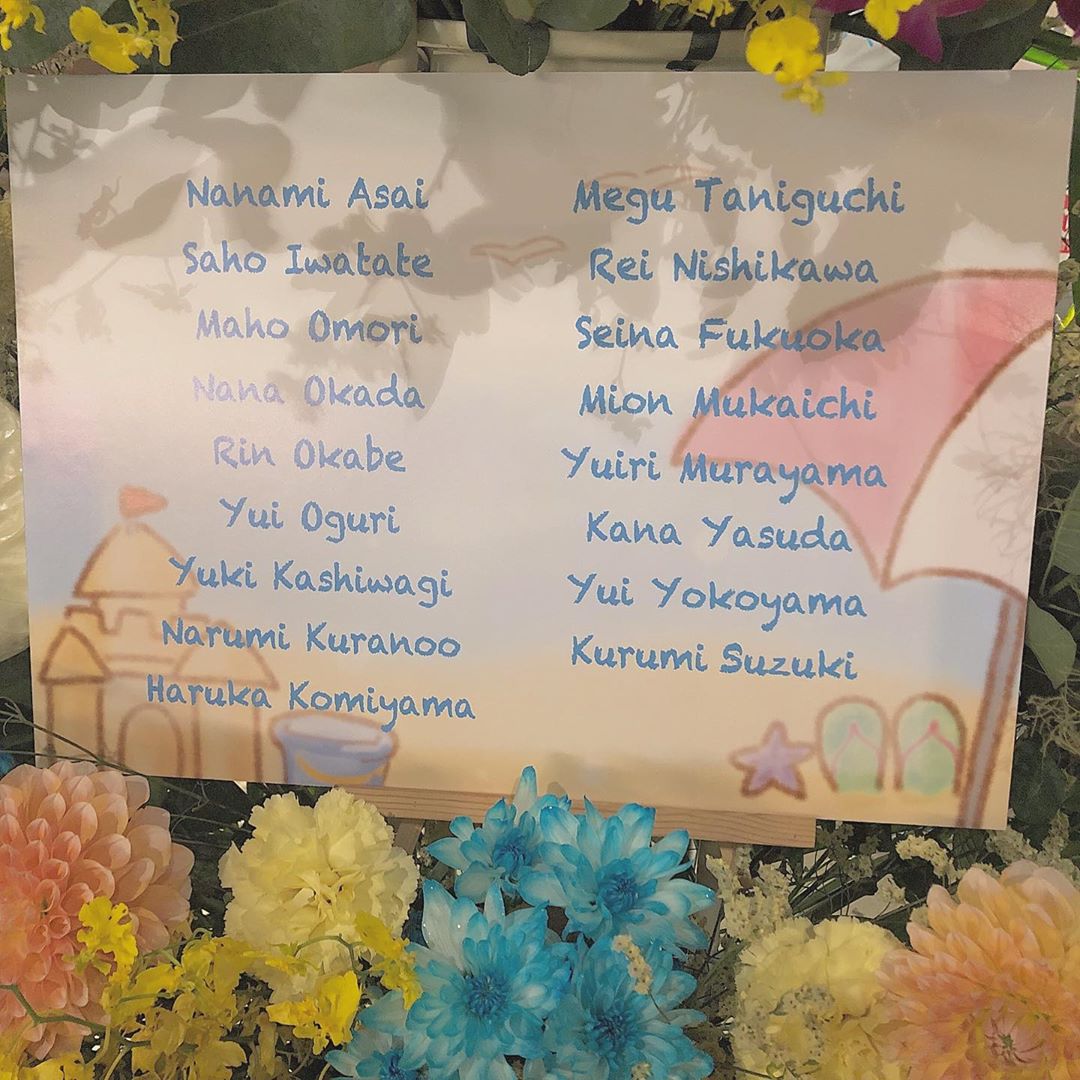 Nanami Asai
Saho Iwatate
Maho Omori
Nana Okada
Rin Okabe
Yui Oguri
Yuki Kashiwagi
Narumi Kuranoo
Haruka Komiyama
Megu Taniguchi
Rei Nishikawa
Seina Fukuoka
Mion Mukaichi
Yuiri Murayama
Kana Yasuda
Yui Yokoyama
Kurumi Suzuki